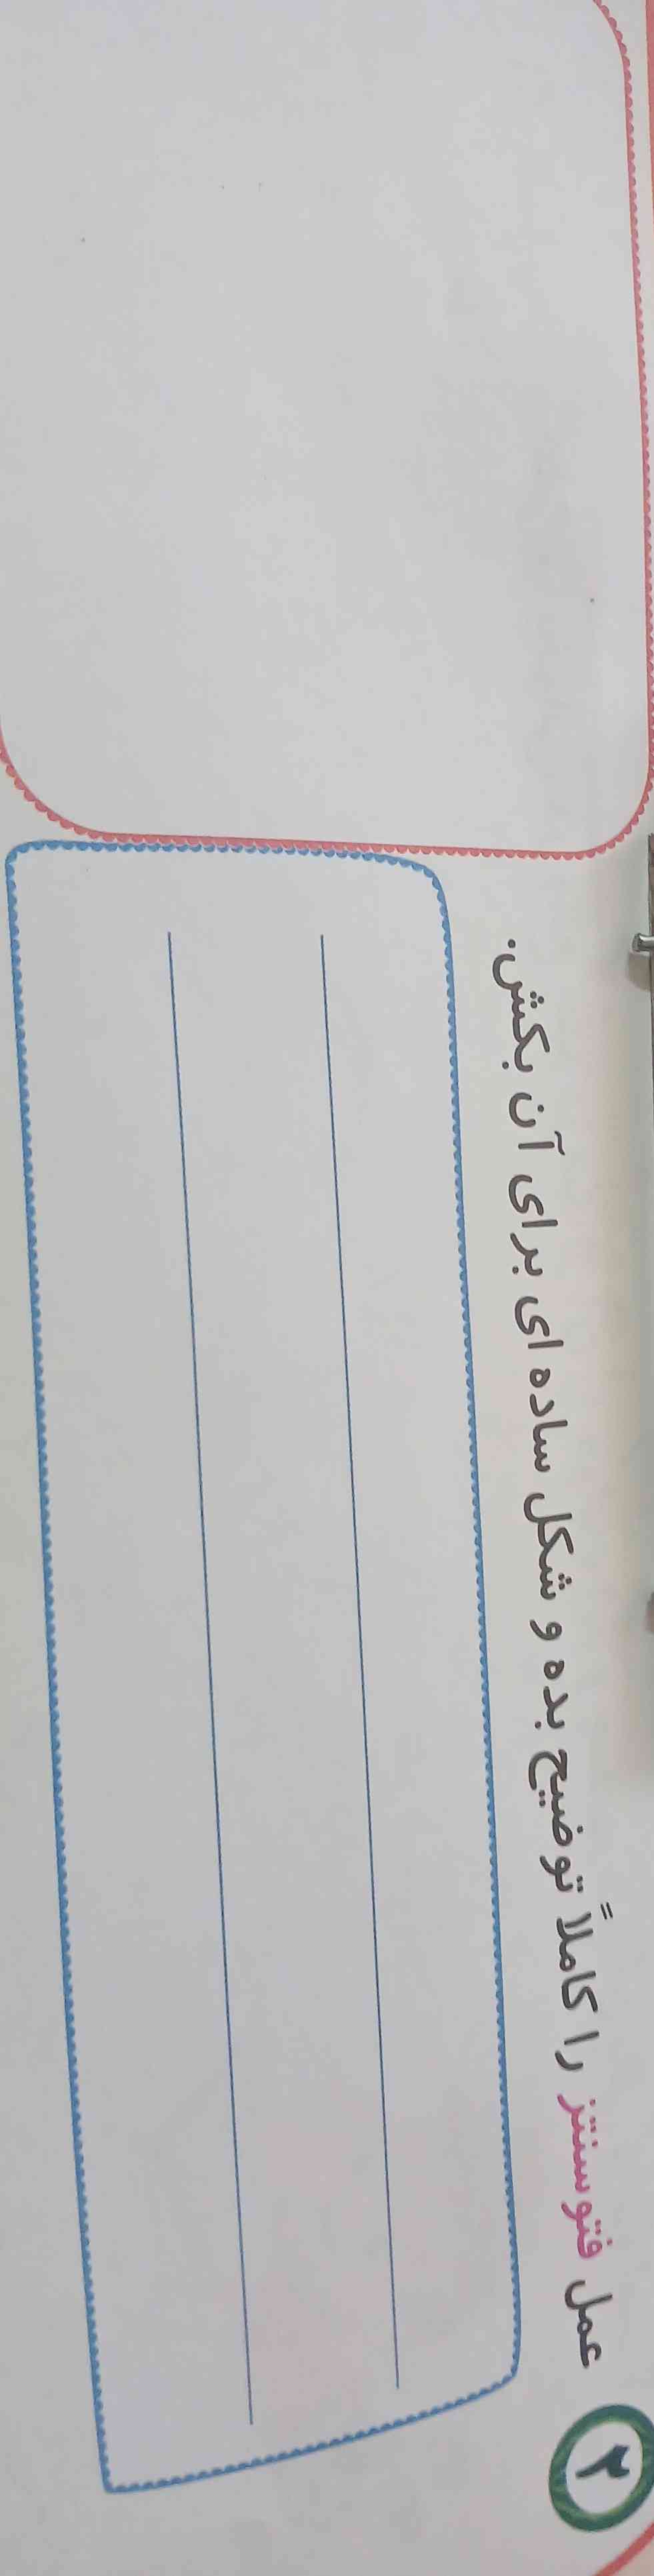 ۲ عمل فتوسنتز را کاملاً توضیح بده و شکل ساده ای برای آن بکش.